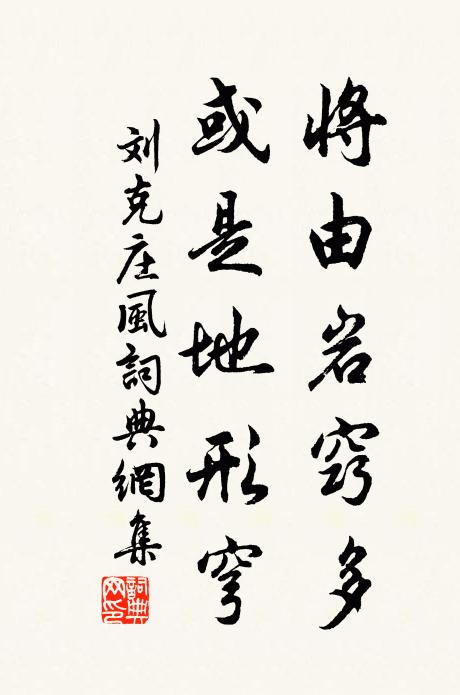 將由岩窍多
或是地形穹
刘克庄風詞典網集
詞典
网印